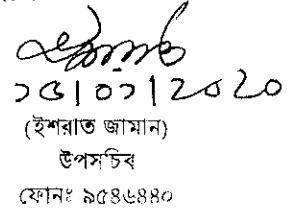 ১৫|০১|২০২০
(ইশরাত জামান)
উপসচিব
ফোনঃ ৯৫৪৬৪৪০